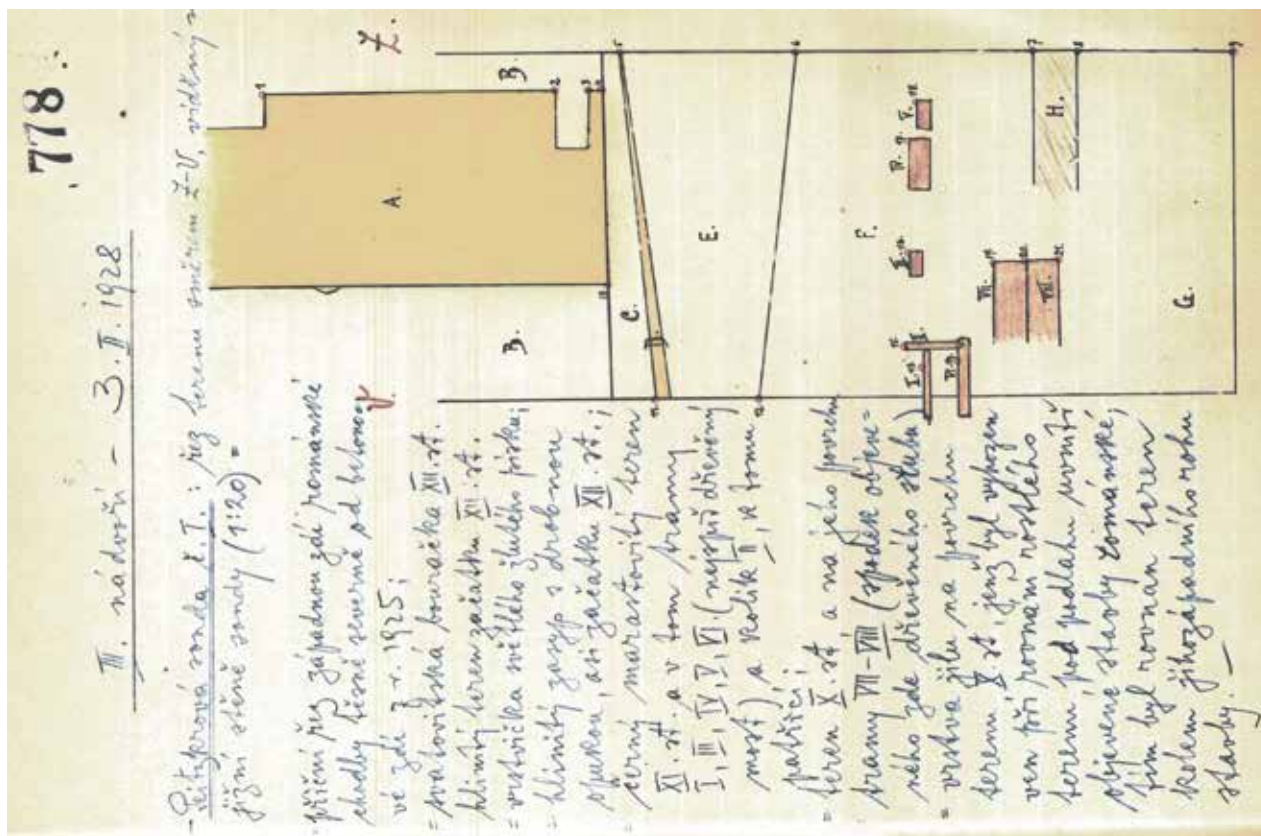 778.
III. nádvoří – 3. II. 1928
sonda č. I. : řez terenu směrem Z-V, viděný v
jižní stěně sondy (1:20) =
= příční řez západnou zdí románské
chodby těsně severně od betono-
vé zdi z r. 1925;
= svatovítská bouračka XIII. st.
hlinitý teren začátku XIII. st.
= vrstvička světlého žlutého písku;
= hlinitý zásyp s drobnou
opukou, asi začátku XII. st.;
= černý marastovitý teren
XI. st. a v tom tramy
I, III, IV, V, VI (nejspíš dřevěný
most) a kolík II, k tomu
patřící;
= teren X. st, a na jeho povrchu
tramy VII-VIII (spodek objeve=
ného zde dřevěného srubu)
= vrstva jílu na povrchu
terenu X. st, jenž byl vyhozen
ven při rovnání rostlého
terenu pod podlahu uvnitř
objevené stavby románské;
tím byl rovnán teren
kolem jihozápadního rohu
stavby. —
V.
Z.
A.
B.
B.
C.
D.
E.
F.
G.
H.
1
2
3
5
6
7
8
9
I.
II.
III.
IV.
V.
VI.
VII.
VIII.